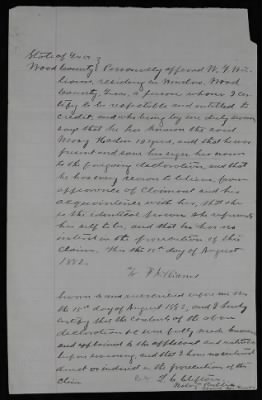 State of Texas }
Wood County } Personally appeared W. F. Wil
liams, residing in Winslow, Wood
County, Texas, a person whom I cer
tify to be respectable and entitled to
credit, and who being by me duly sworn
says that he has known the said
Mary 18 years, and that he was
present and saw her sign her name
to the foregoing declaration and that
he has every reason to believe from
appearance of Claimant and his
acquaintance with her, that she
is the identical person she represents
her self to be, and that he has no
interest in the prosecution of this
Claim. This the 15th day of August
1882.
W. F. Williams
Sworn to and subscribed before me this
the 15th day of August 1882, and I hereby
certify that the contents of the above
declaration &c were fully made known
and explained to the applicant and witness
before swearing, and that I have no interest
direct or indirect in the prosecution of this
Claim.
Notary Public